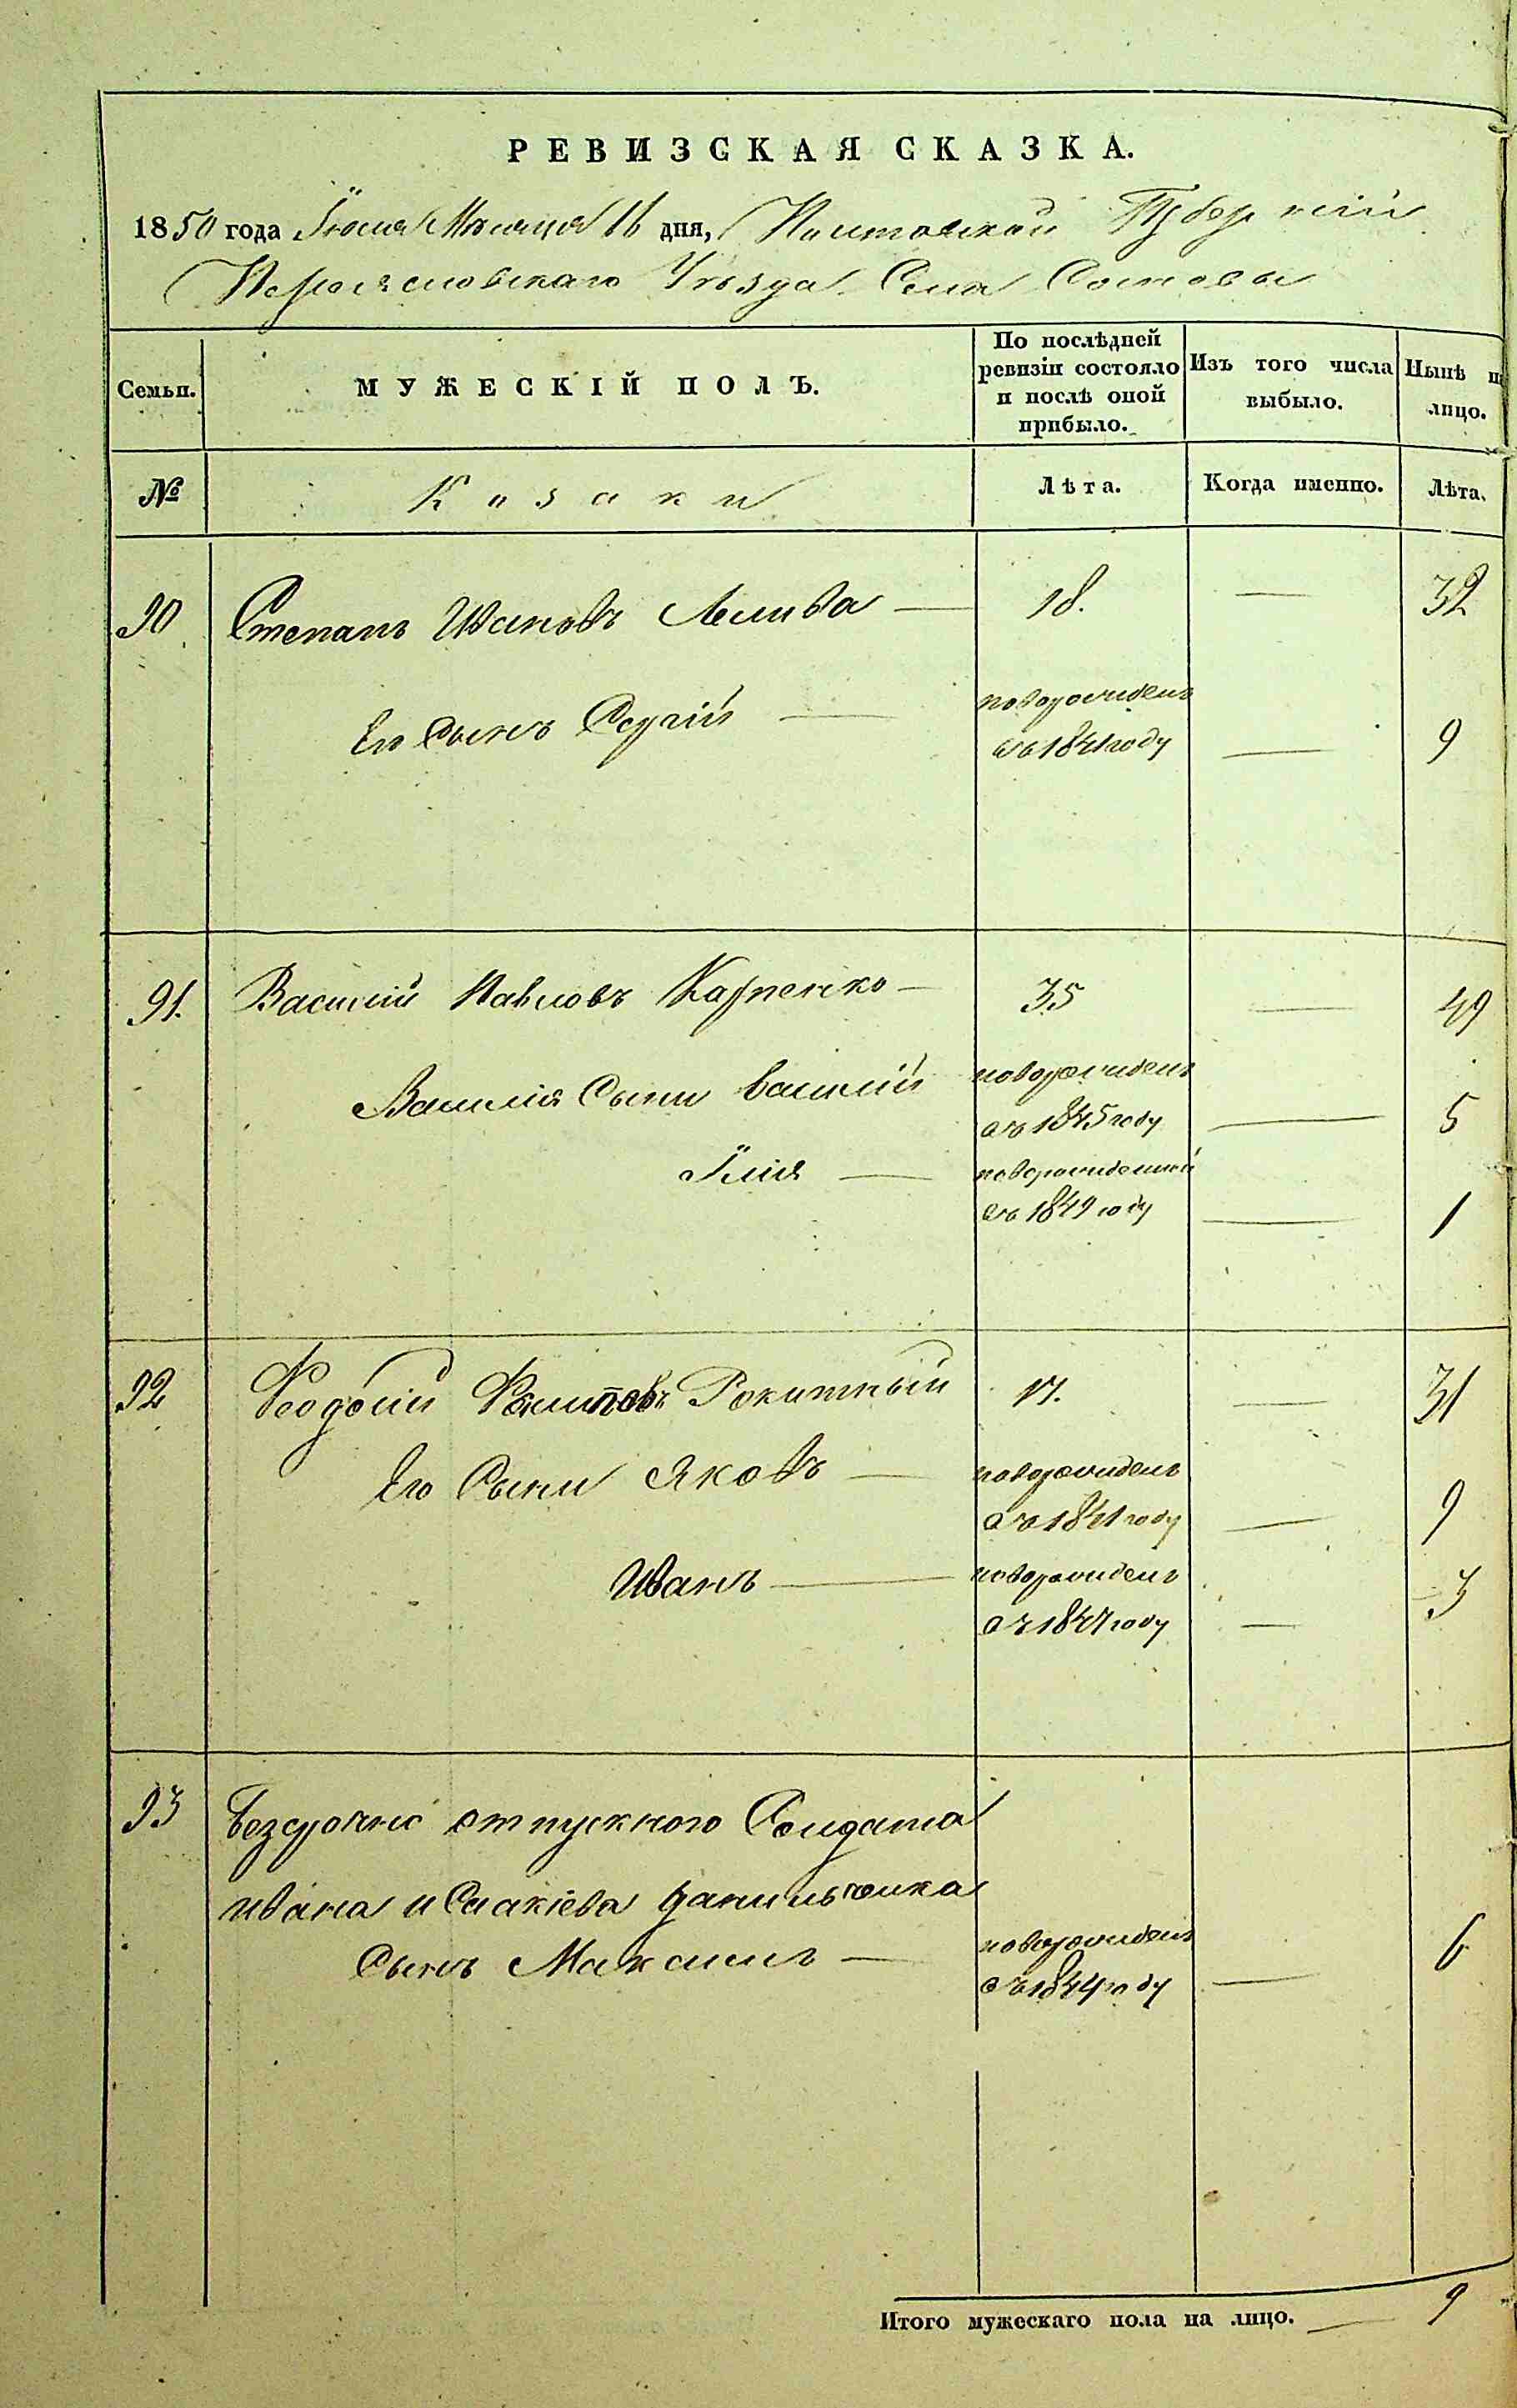 РЕВИЗСКАЯ СКАЗКА.
1850 года Іюня Мѣсяца 16 дня, Полтавской Губерніи
Переяславскаго Уѣзда Села Сосновы
Семьи.
МУЖЕСКІЙ ПОЛЪ.
По послѣдней ревизіи состояло и послѣ оной прибыло.
Изъ того числа выбыло.
Нынѣ н лицо.
№
Козаки
Лѣта.
Когда именно.
Лѣта.
90 Степанъ Ивановъ Лелива — 18. — 32
Его Сынъ Сергій — новорожденъ
съ 1841 году — 9
91. Василій Павловъ Карпенко — 35 — 49
Василія Сыни Василій новорожденъ
съ 1845 году — 5
Илія — новорожденный
съ 1849 году — 1
92 Феодосій Филиповъ Рокитный 17. — 31
Его Сыни Яковъ — новорожденъ
съ 1841 году — 9
Иванъ — новорожденъ
съ 1847 году — 3
93 Безсрочно отпускного Солдата
Ивана Данильченка
Сынъ Максимъ — новорожденъ
съ 1844 году — 6
Итого мужескаго пола на лицо. — 9